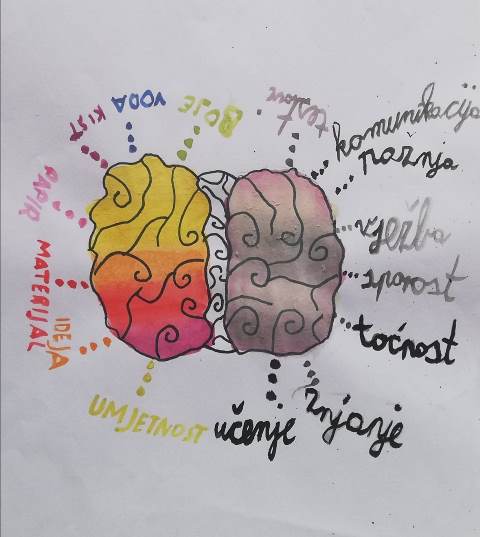 UMJETNOST
IDEJA
MATERIJAL
PAPIR
KIST
VODA
BOJE
komunikacija
pažnja
vježba
sporost
točnost
znjanje
učenje